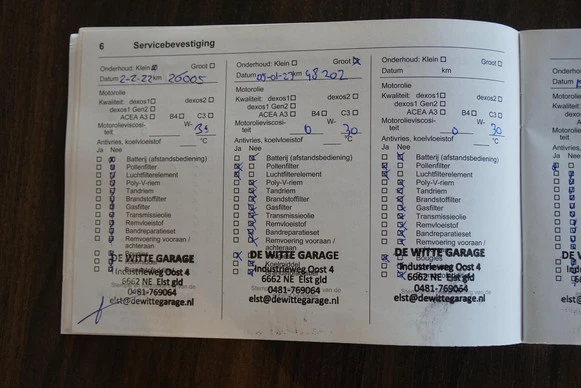 6 Servicebevestiging
Onderhoud: Klein Groot
Datum 2-2-22 km 26005
Motorolie
Kwaliteit: dexos1 dexos2
dexos1 Gen2
ACEA A3 B4 C3
Motorolieviscosi-
teit W-
Antivries, koelvloeistof °C
Ja Nee
Batterij (afstandsbediening)
Pollenfilter
Luchtfilterelement
Poly-V-riem
Tandriem
Brandstoffilter
Gasfilter
Transmissieolie
Remvloeistof
Bandreparatieset
Remvoering vooraan /
achteraan
DE WITTE GARAGE
Industrieweg Oost 4
6662 NE Elst gld
0481-769064
elst@dewittegarage.nl
Onderhoud: Klein Groot
Datum km 48202
Motorolie
Kwaliteit: dexos1 dexos2
dexos1 Gen2
ACEA A3 B4 C3
Motorolieviscosi-
teit 0 W- 30
Antivries, koelvloeistof °C
Ja Nee
Batterij (afstandsbediening)
Pollenfilter
Luchtfilterelement
Poly-V-riem
Tandriem
Brandstoffilter
Gasfilter
Transmissieolie
Remvloeistof
Bandreparatieset
Remvoering vooraan /
achteraan
DE WITTE GARAGE
Industrieweg Oost 4
6662 NE Elst gld
0481-769064
elst@dewittegarage.nl
Onderhoud: Klein Groot
Datum km
Motorolie
Kwaliteit: dexos1 dexos2
dexos1 Gen2
ACEA A3 B4 C3
Motorolieviscosi-
teit 0 W- 30
Antivries, koelvloeistof °C
Ja Nee
Batterij (afstandsbediening)
Pollenfilter
Luchtfilterelement
Poly-V-riem
Tandriem
Brandstoffilter
Gasfilter
Transmissieolie
Remvloeistof
Bandreparatieset
Remvoering vooraan /
DE WITTE GARAGE
Bougies
Industrieweg Oost 4
6662 NE Elst gld
0481-769064
elst@dewittegarage.nl